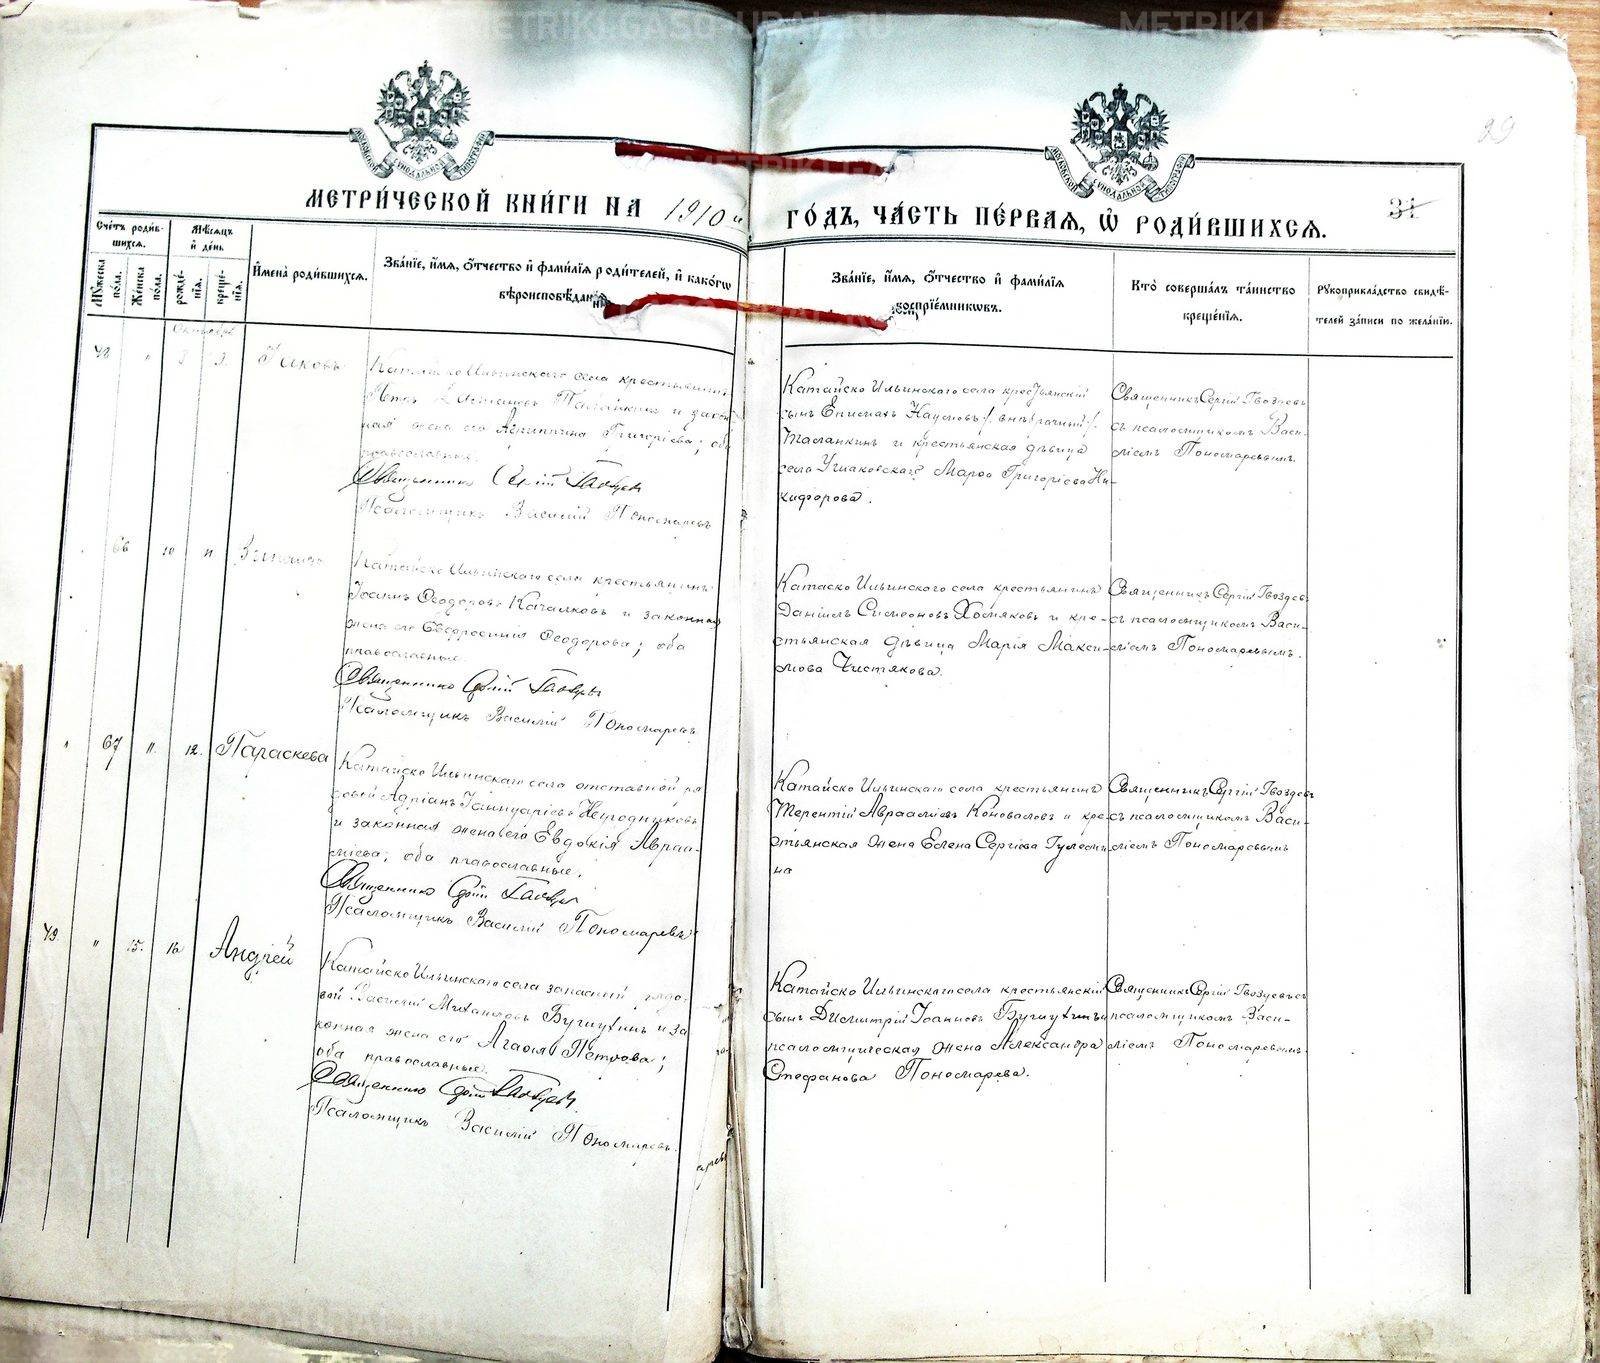 METRIKI.GASO-URAL.RU
METRIKI.GASO-URAL.RU
29
31
МЕТРИ́ЧЕСКОЙ КНИ́ГИ НА 1910 й ГО́ДЪ, ЧА́СТЬ ПЕ́РВАЯ, Ѡ РОДИ́ВШИХСЯ.
Сче́тъ роди́вшихся.
Мѣ́сяцъ и де́нь
Мужеска по́ла.
Же́нска по́ла.
рожде́нія.
креще́нія.
Имена̀ роди́вшихся.
Зва́ніе, и́мя, о́тчество и фами́лія роди́телей, и како́гѡ
вѣроисповѣ́данія
Зва́ніе, и́мя, о́тчество и фами́лія
воспріе́мниковъ.
Кто̀ соверша́лъ та́инство
креще́нія.
Рукоприкла́дство свидѣ́-
телей за́писи по жела́нію.
Октябрь
48 " 2.
Іаковъ
Катайско Ильинскаго села крестьянинъ
и закон-
ная жена его Агриппина Григорьева; оба
православные.
Священникъ Сергій Гвоздевъ
Псаломщикъ Василій Пономаревъ
Катайско Ильинскаго села крестьянскій
сынъ Епимахъ Наумовъ /внѣбрачный/
Таланкинъ и крестьянская дѣвица
села Ушаковскаго Марѳа Григорьева Ни-
кифорова.
Священникъ Сергій Гвоздевъ
съ псаломщикомъ Васи-
ліемъ Пономаревымъ
66 10 11
Катайско Ильинскаго села крестьянинъ
Іоаннъ Ѳеодоровъ Качалковъ и законная
жена его Евфросинія Ѳеодорова; оба
православные.
Священникъ Сергій Гвоздевъ
Псаломщикъ Василій Пономаревъ
Катаско Ильинскаго села крестьянинъ
Даніилъ Симеоновъ Хомяковъ и кре-
стьянская дѣвица Марія Макси-
мова Чистякова.
Священникъ Сергій Гвоздевъ
съ псаломщикомъ Васи-
ліемъ Пономаревымъ.
" 67 11. 12. Параскева
Катайско Ильинскаго села отставной ря
довой Адріанъ Іаннуаріевъ Негодниковъ
и законная жена его Евдокія Авраа-
міева; оба православные.
Священникъ Сергій Гвоздевъ
Псаломщикъ Василій Пономаревъ
Катайско Ильинскаго села крестьянинъ
Терентій Авраамiевъ Коноваловъ и кре-
стьянская жена Елена Сергіева
на
Священникъ Сергій Гвоздевъ
съ псаломщикомъ Васи-
ліемъ Пономаревымъ
49. " 15. 16 Андрей
Катайско Ильинскаго села запасной рядо-
вой Василій Михаиловъ Бугшухинъ и за
конная жена его Агафія Петрова;
оба православные.
Священникъ Сергій Гвоздевъ.
Псаломщикъ Василій Пономаревъ.
Катайско Ильинскаго села крестьянскій
сынъ Димитрій Іоанновъ Бугшухинъ и
псаломщическая жена Александра
Стефанова Пономарева.
Священникъ Сергій Гвоздевъ съ
псаломщикомъ Васи-
ліемъ Пономаревымъ.